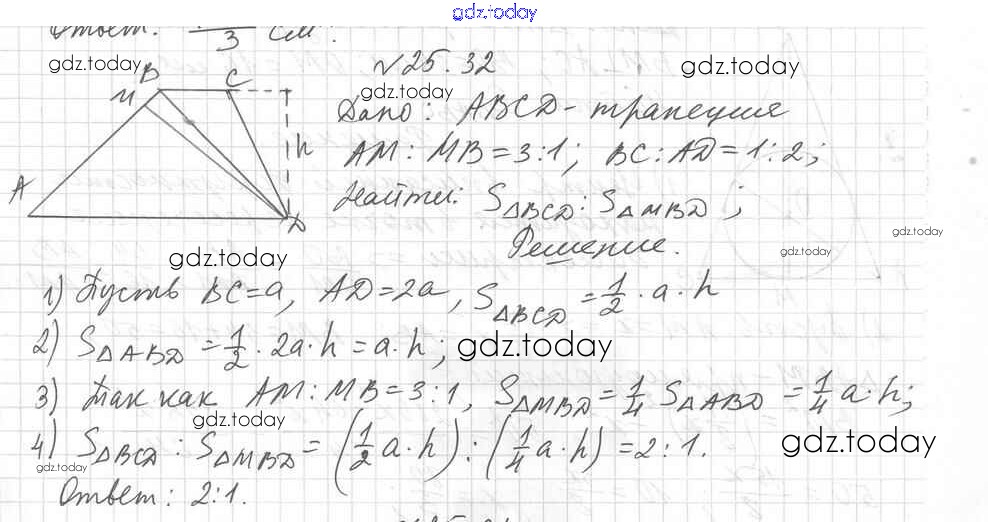 gdz.today
Ответ: /3 см.
gdz.today
№25.32
gdz.today
B C
M
gdz.today
Дано: ABCD - трапеция
h
AM : MB = 3:1; BC : AD = 1:2;
A
Найти: S△BCD : S△MBD;
D
gdz.today
Решение.
gdz.today
gdz.today
1) Пусть BC = a, AD = 2a, S△BCD = 1/2 · a · h
2) S△ABD = 1/2 · 2a · h = a · h;
gdz.today
3) Так как AM : MB = 3:1, S△MBD = 1/4 S△ABD = 1/4 a · h;
gdz.today
4) S△BCD : S△MBD = (1/2 a · h) : (1/4 a · h) = 2:1.
gdz.today
gdz.today
Ответ: 2:1.